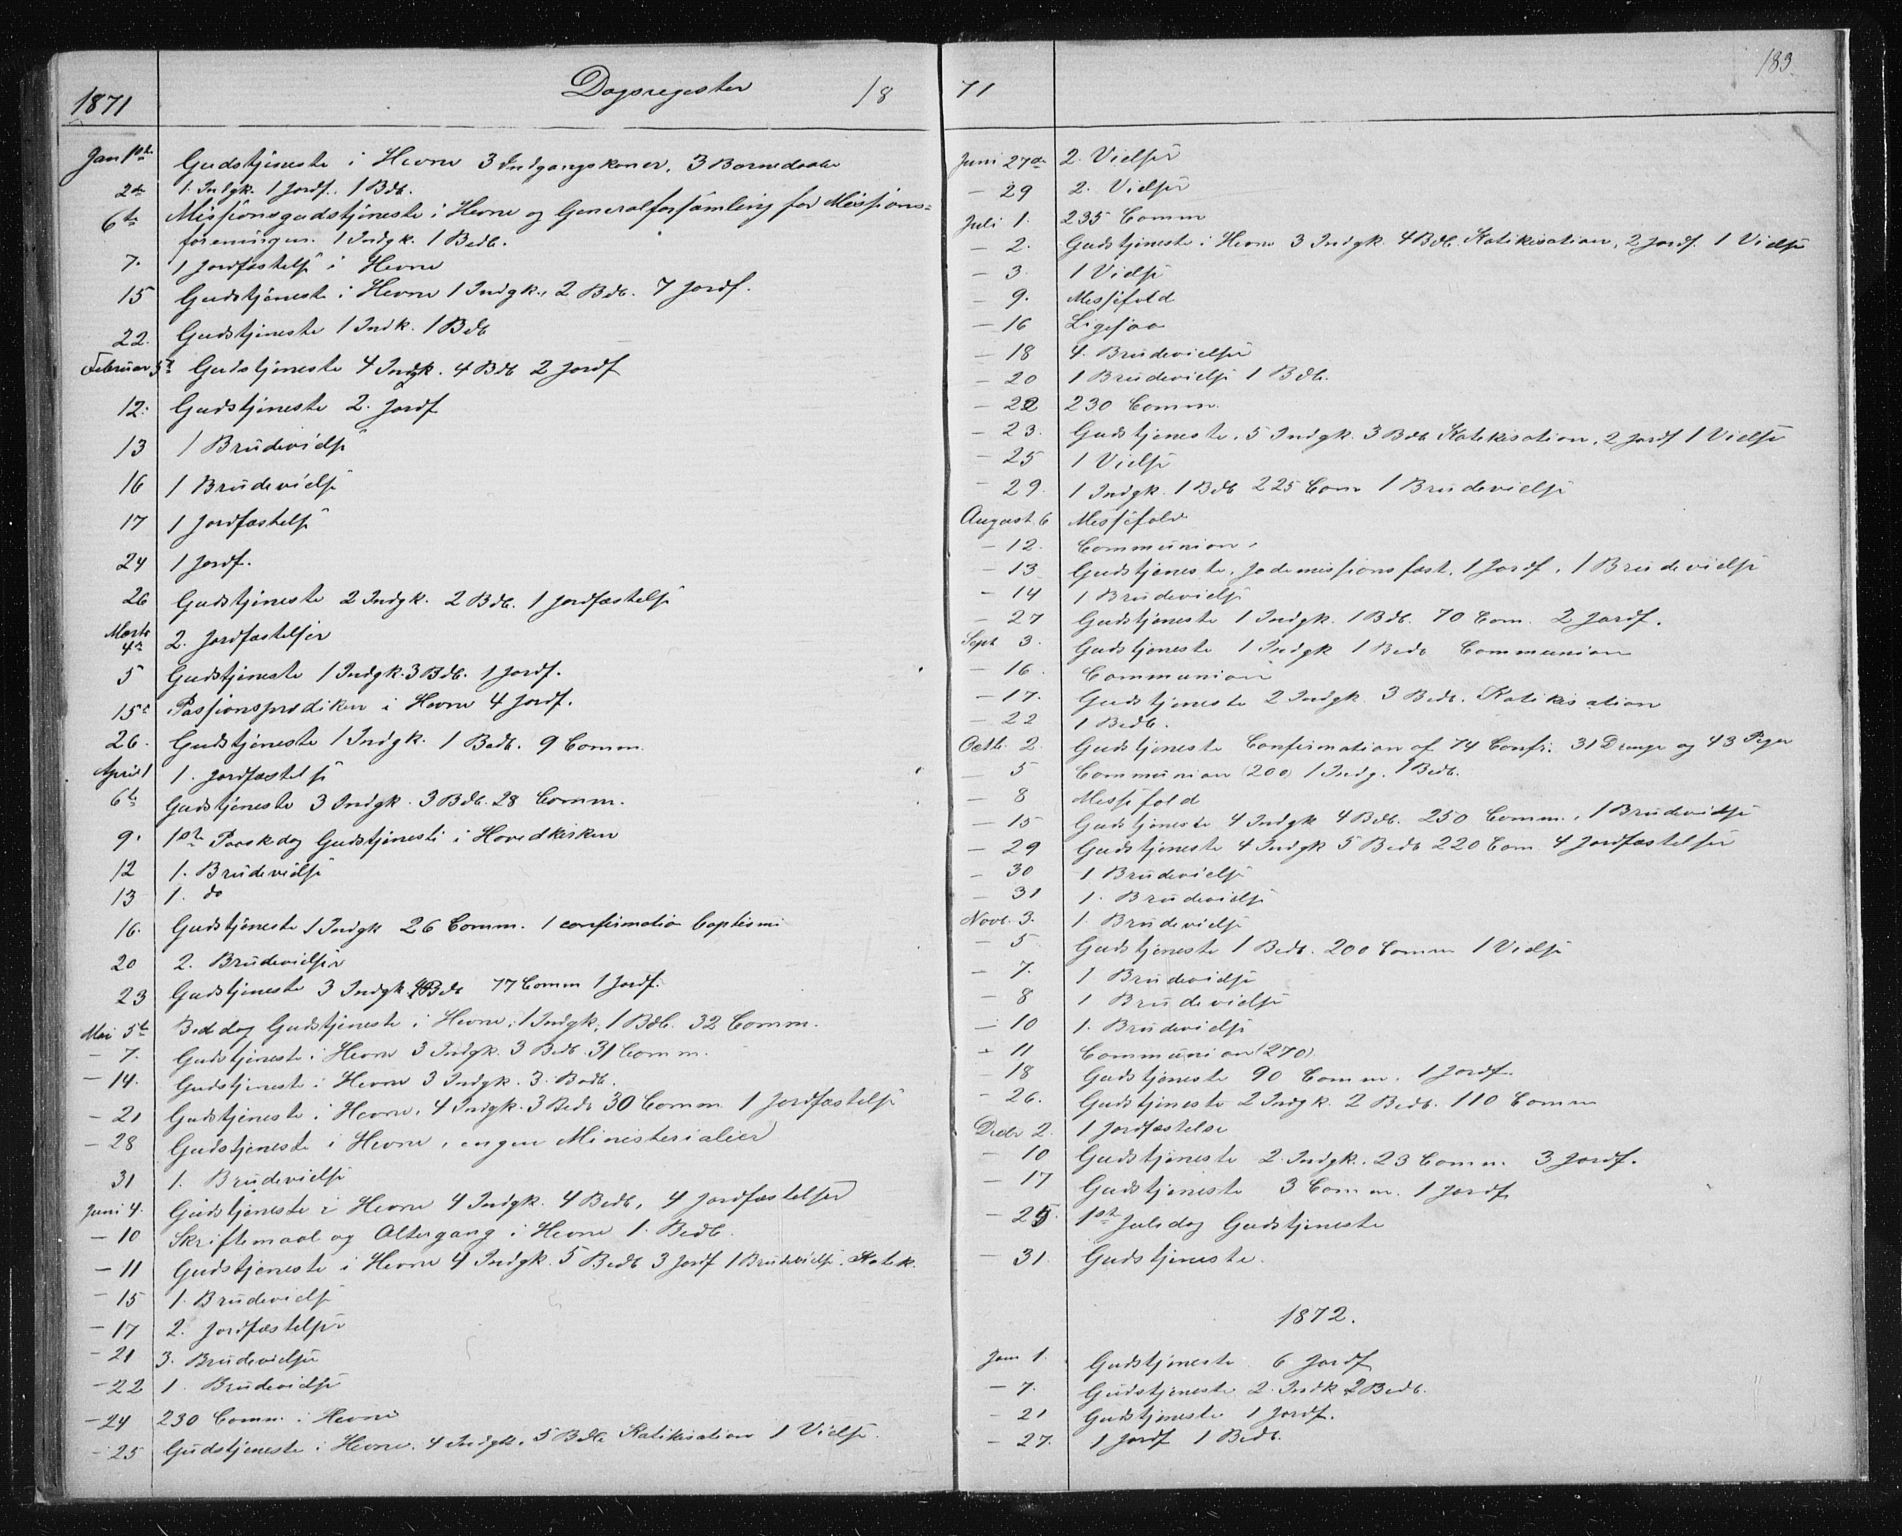 1871 Dagsregister 18
Jan 1ste Gudstjeneste i Hevne 3 Indgangskoner, 3 Barnedaabe
2de 1. Indgk. 1 Jordf. 1 Bdb.
6te Missionsgudstjeneste i Hevne og Generalforsamling for Missions-
foreningen. 1 Indgk. 1 Bedb.
7. 1 Jordfæstelse i Hevne
15 Gudstjeneste i Hevne 1 Indgk., 2 Bdb. 7 Jordf.
22. Gudstjeneste 1 Indk. 1 Bdb
Februar 5te Gudstjeneste 4 Indgk. 4 Bdb 2 Jordf
12. Gudstjeneste 2. Jordf
13 1 Brudevielse
16 1 Brudevielse
17 1 Jordfæstelse
24 1 Jordf.
26 Gudstjeneste 2 Indgk. 2 Bdb. 1 Jordfæstelse
Marts
4de 2. Jordfæstelser
5 Gudstjeneste 1 Indgk. 3 Bdb. 1 Jordf.
15de Passionsprædiken i Hevne 4 Jordf.
26. Gudstjeneste 1 Indgk. 1 Bedb. 9 Comm.
April 1 1. Jordfæstelse
6te Gudstjeneste 3 Indgk. 3 Bdb. 28 Comm.
9. 1ste Paaskedag Gudstjeneste i Hovedkirken
12 1. Brudevielse
13 1. do
16. Gudstjeneste 1 Indgk 26 Comm. 1 confirmatio baptismi
20 2. Brudevielser
23 Gudstjeneste 3 Indgk Bdb 77 Comm 1 Jordf.
Mai 5te Beddag Gudstjeneste i Hevne, 1 Indgk, 1 Bdb. 32 Comm.
- 7. Gudstjeneste i Hevne 3 Indgk. 3 Bedb. 31 Comm.
- 14. Gudstjeneste i Hevne 3 Indgk. 3. Bedb.
- 21 Gudstjeneste i Hevne, 4 Indgk. 3 Bedb 30 Comm. 1 Jordfæstelse
- 28 Gudstjeneste i Hevne, ingen Ministerialier
31 1. Brudevielse
Juni 4. Gudstjeneste i Hevne 4 Indgk. 4 Bedb, 4 Jordfæstelser
- 10 Skriftemaal og Altergang i Hevne 1. Bedb.
- 11 Gudstjeneste i Hevne 4 Indgk. 5 Bedb 3 Jordf 1 Brudevielse. Katek.
- 15 1. Brudevielse
- 17 2. Jordfæstelser
- 21 3. Brudevielser
- 22 1. Brudevielse
- 24 230 Comm. i Hevne
- 25 Gudstjeneste i Hevne. 4 Indgk. 5 Bdb Katikisation 1 Vielse.
71 183.
Juni 27de 2. Vielser
- 29 2. Vielser
Juli 1. 235 Comm
- 2. Gudstjeneste i Hevne 3 Indgk. 4 Bdb. Katikisation, 2 Jordf. 1 Vielse
- 3. 1 Vielse
- 9. Messefald
- 16 Ligesaa
- 18 4. Brudevielser
- 20 1 Brudevielse 1 Bdb.
- 22 230 Comm.
- 23. Gudstjeneste, 5 Indgk. 3 Bdb Katekisation, 2 Jordf 1 Vielse
- 25 1 Vielse
- 29. 1 Indgk. 1 Bdb 225 Com 1 Brudevielse
August 6 Messefald
- 12. Communion.
- 13 Gudstjeneste, Jødemissionsfæst, 1 Jordf, 1 Brudevielse
- 14 1 Brudevielse
- 27 Gudstjeneste 1 Indgk. 1 Bdb. 70 Com. 2 Jordf.
Sept 3. Gudstjeneste 1 Indgk 1 Bedb Communion
- 16. Communion
- 17. Gudstjeneste 2 Indgk 3 Bedb. Katikisation
- 22 1 Bedb.
Octb. 2. Gudstjeneste Confirmation af 74 Confr. 31 Drenge og 43 Piger
- 5 Communion (200) 1 Indg. 1 Bedb.
- 8 Messefald
- 15 Gudstjeneste 4 Indgk 4 Bdb. 250 Comm., 1 Brudevielse
- 29 Gudstjeneste 4 Indgk 5 Bedb 220 Com. 4 Jordfæstelser
- 30 1 Brudevielse
- 31 1. Brudevielse
Novb. 3. 1. Brudevielse
- 5. Gudstjeneste 1 Bedb. 200 Comm 1 Vielse
- 7. 1 Brudevielse
- 8 1 Brudevielse
- 10 1. Brudevielse
- 11 Communion (270)
- 18 Gudstjeneste 90 Comm. 1 Jordf.
- 26. Gudstjeneste 2 Indgk. 2 Bedb. 110 Comm
Decbr 2. 1 Jordfæstelse
- 10 Gudstjeneste 2. Indgk. 23 Comm. 3 Jordf.
- 17 Gudstjeneste 3 Comm. 1 Jordf
- 25. 1ste Juledag Gudstjeneste
- 31. Gudstjeneste.
1872.
Jan 1. Gudstjeneste 6 Jordf
- 7. Gudstjeneste 2. Indk 2 Bedb.
- 21 Gudstjeneste 1 Jordf.
- 27. 1 Jordf 1 Bedb.